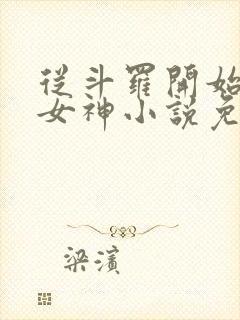 從斗羅開始
女神小說免
梁濱